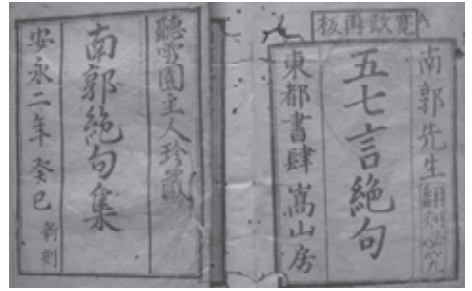 寛政再板
南郭先生翻刻必究
五七言絶句
東都書肆嵩山房
聽雪園主人珍藏
南郭絶句集
安永二年癸巳新刻